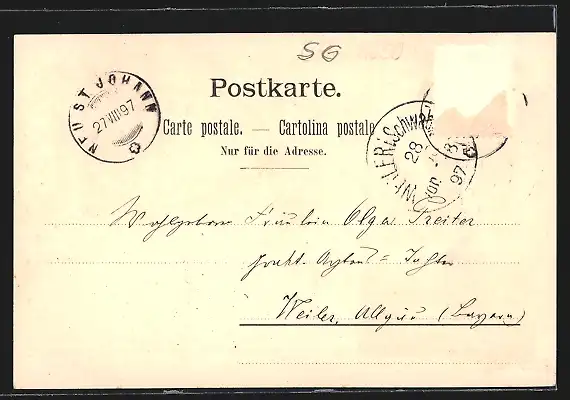 SG
NEU ST. JOHANN
27 VIII 97
Postkarte.
Carte postale. — Cartolina postale
Nur für die Adresse.
WEILER i. Schwa
28
97
Wohlgeboren Fräulein Olga Preiter
prakt. Arztens = Tochter
Weiler, Allgäu (Bayern)